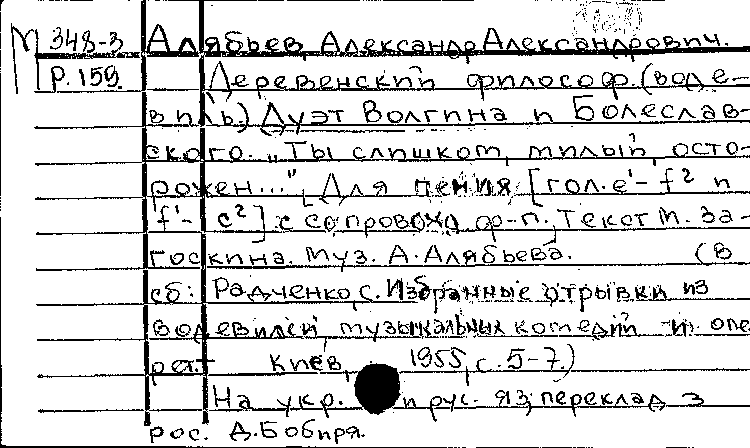 М 348-3 Алябьев, Александр Александрович.
Р.159. Деревенский философ. (воде-
виль) Дуэт Волгина и Болеслав-
ского. „Ты слишком, милый, осто-
рожен..." Для пения [гол. e¹- f² и
f¹- c²] с сопровожд ф-п. Текст М. За-
госкина. Муз. А. Алябьева. (В
сб: Радченко, С. Избранные отрывки из
водевилей, музыкальных комедий и опе
рет Киев, 1955, с. 5-7.)
На укр. и рус. яз; переклад з
рос. Д. Бобиря.